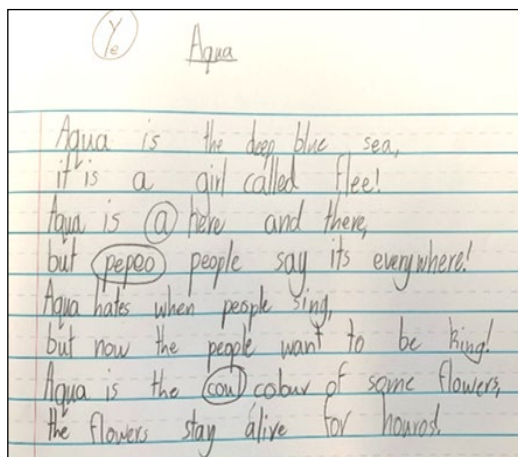 Ye
Aqua
Aqua is the deep blue sea,
it is a girl called flee!
Aqua is a here and there,
but pepeo people say its everywhere!
Aqua hates when people sing,
but now the people want to be king!
Aqua is the coul colour of some flowers,
the flowers stay alive for houros!